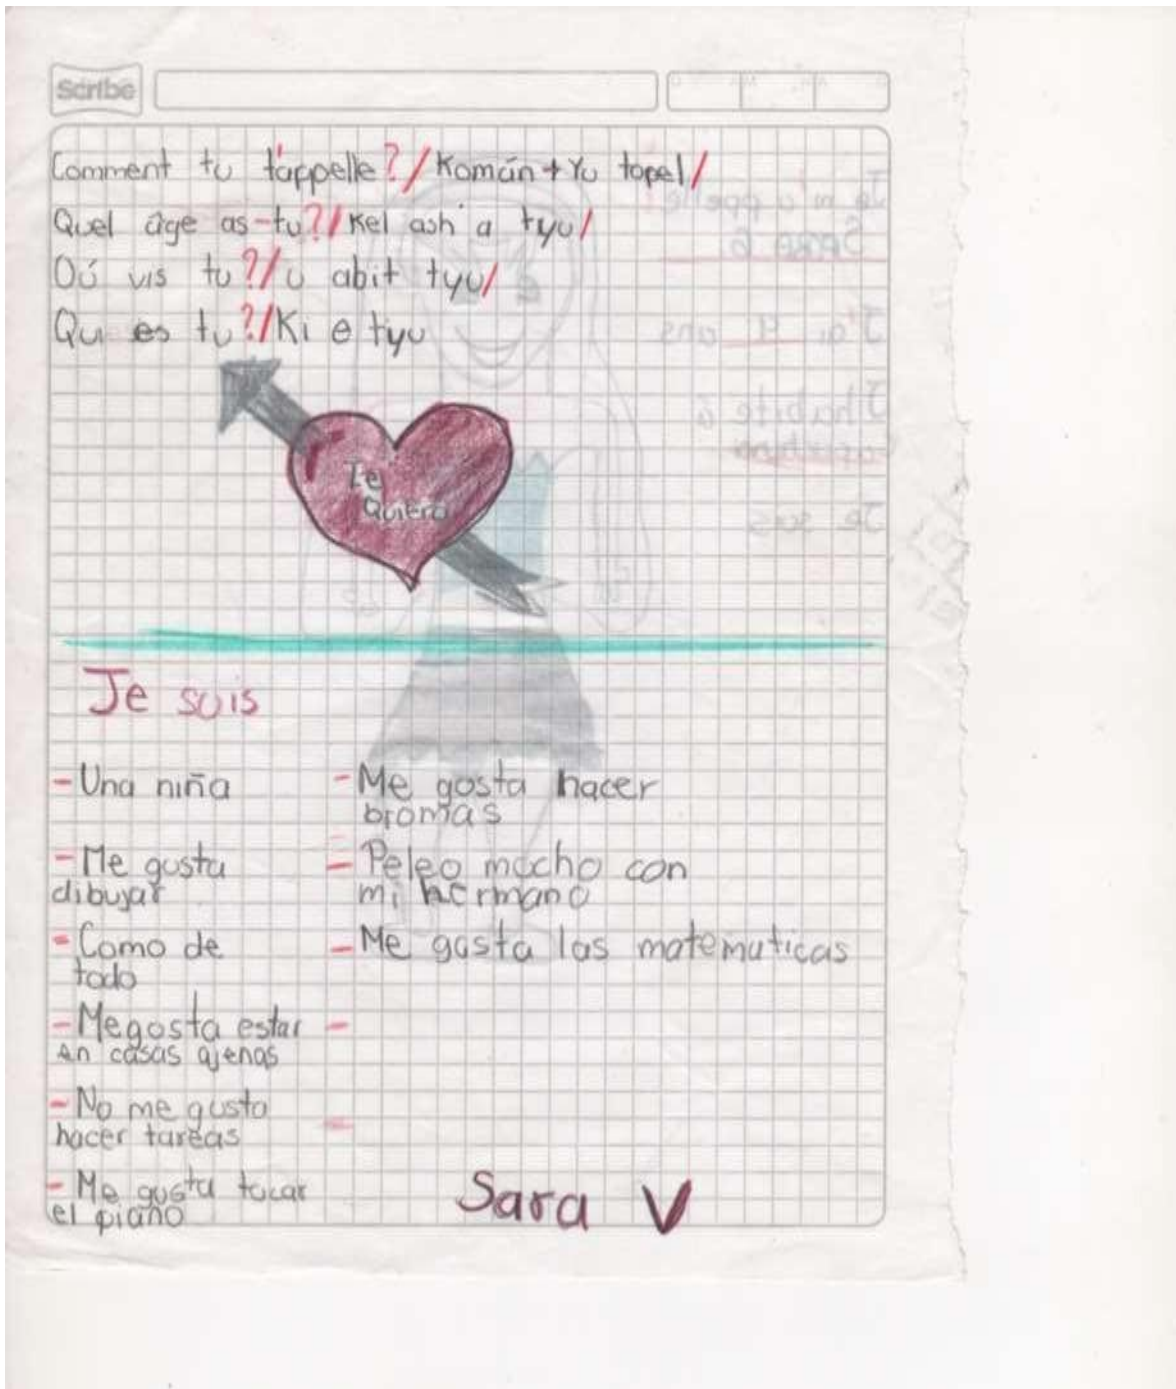 Scribe
Comment tu t'appelle?/Komán+Yu tapel/
Quel âge as-tu?/Kel ash a tyu/
Oú vis tu?/u abit tyu/
Qui es tu?/Ki e tyu
Te
Quiero
Je suis
-Una niña
-Me gusta
dibujar
-Como de
todo
-Me gosta estar
en casas ajenas
-No me gusta
hacer tareas
-Me gusta tocar
el piano
-Me gosta hacer
bromas
-Peleo mucho con
mi hermano
-Me gusta las matematicas
-
-
Sara V